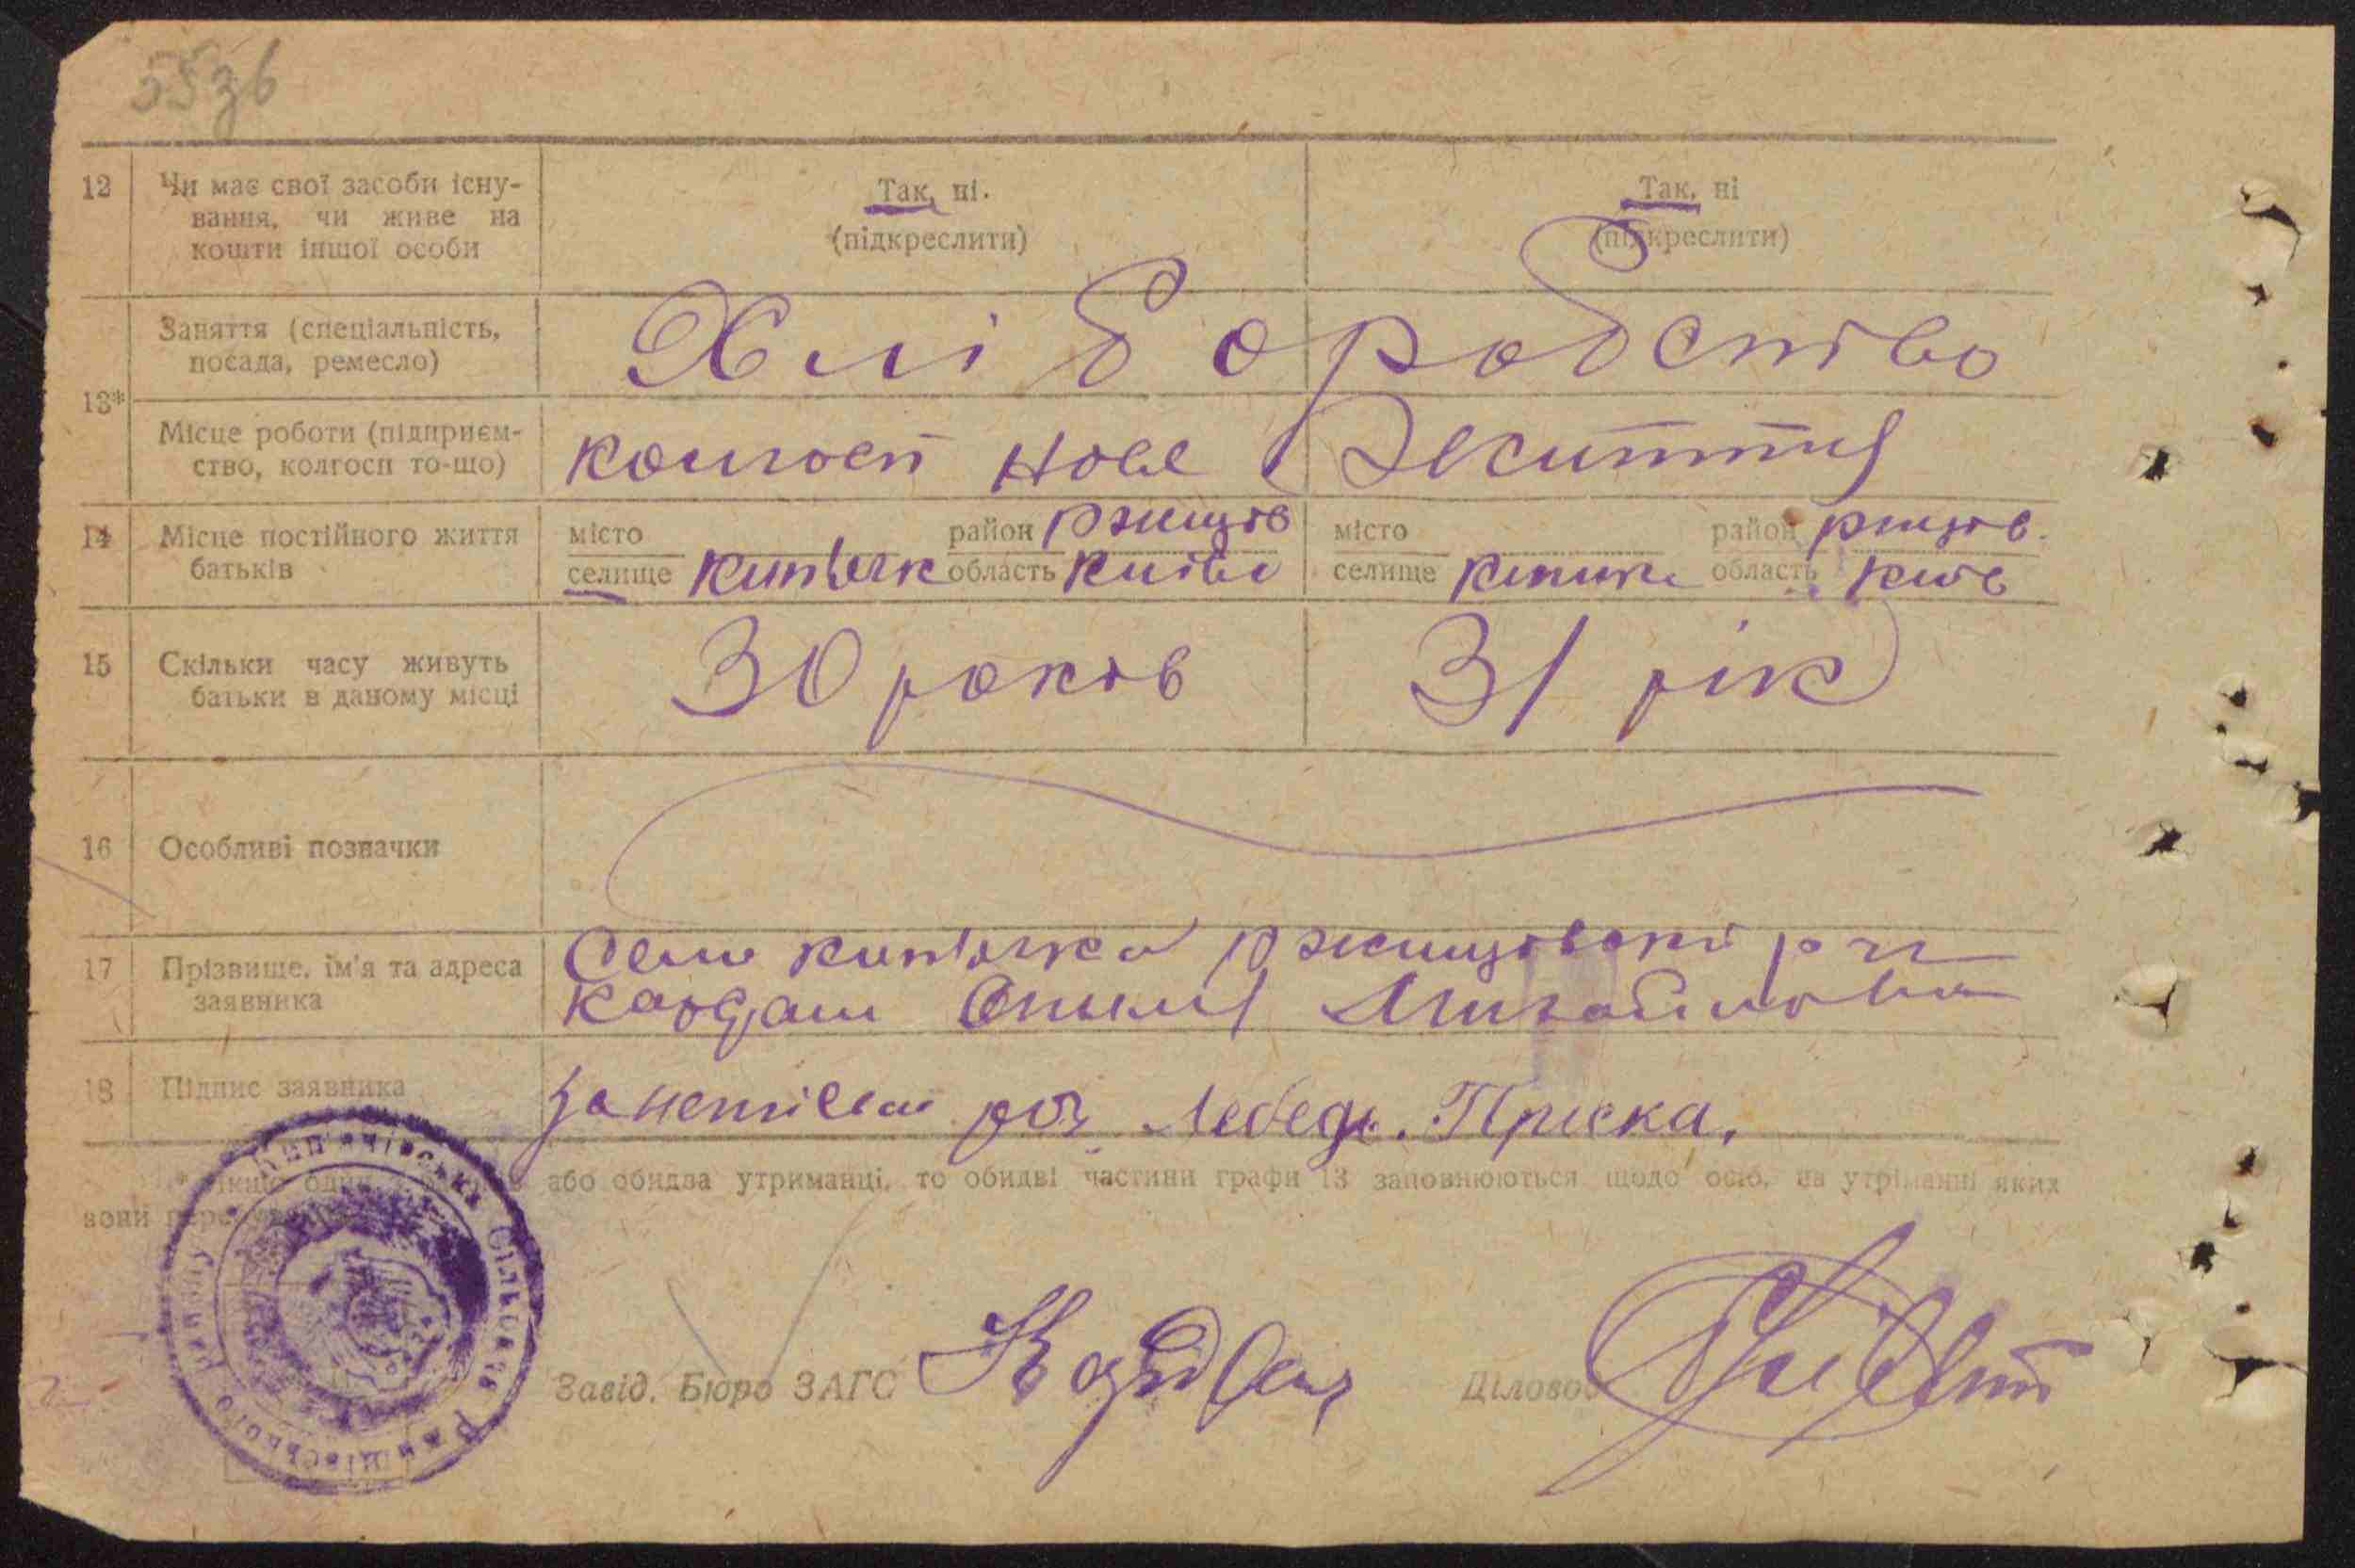 55зв
12 Чи має свої засоби існу-
вання, чи живе на
кошти іншої особи
Так, ні.
(підкреслити)
Так, ні
(підкреслити)
13*
Заняття (спеціальність,
посада, ремесло)
Хліборобство
Місце роботи (підприєм-
ство, колгосп то-що)
колгосп Нове Життя
14 Місце постійного життя
батьків
місто
селище
район Ржищів
область Київ
місто
селище
район Ржищів.
область Київ
15 Скільки часу живуть
батьки в даному місці
30 років
31 рік
16 Особливі позначки
17 Прізвище, ім'я та адреса
заявника
Село Ржищівско р-ну
Кардаш Михайлов
18 Підпис заявника
за Лебедь. Приска.
або обидва утриманці, то обидві частини графи 13 заповнюються щодо осіб, на утриманні яких
вони
Кип'ячківська Сільська Рада Ржищівського Району
Завід. Бюро ЗАГС
Діловод